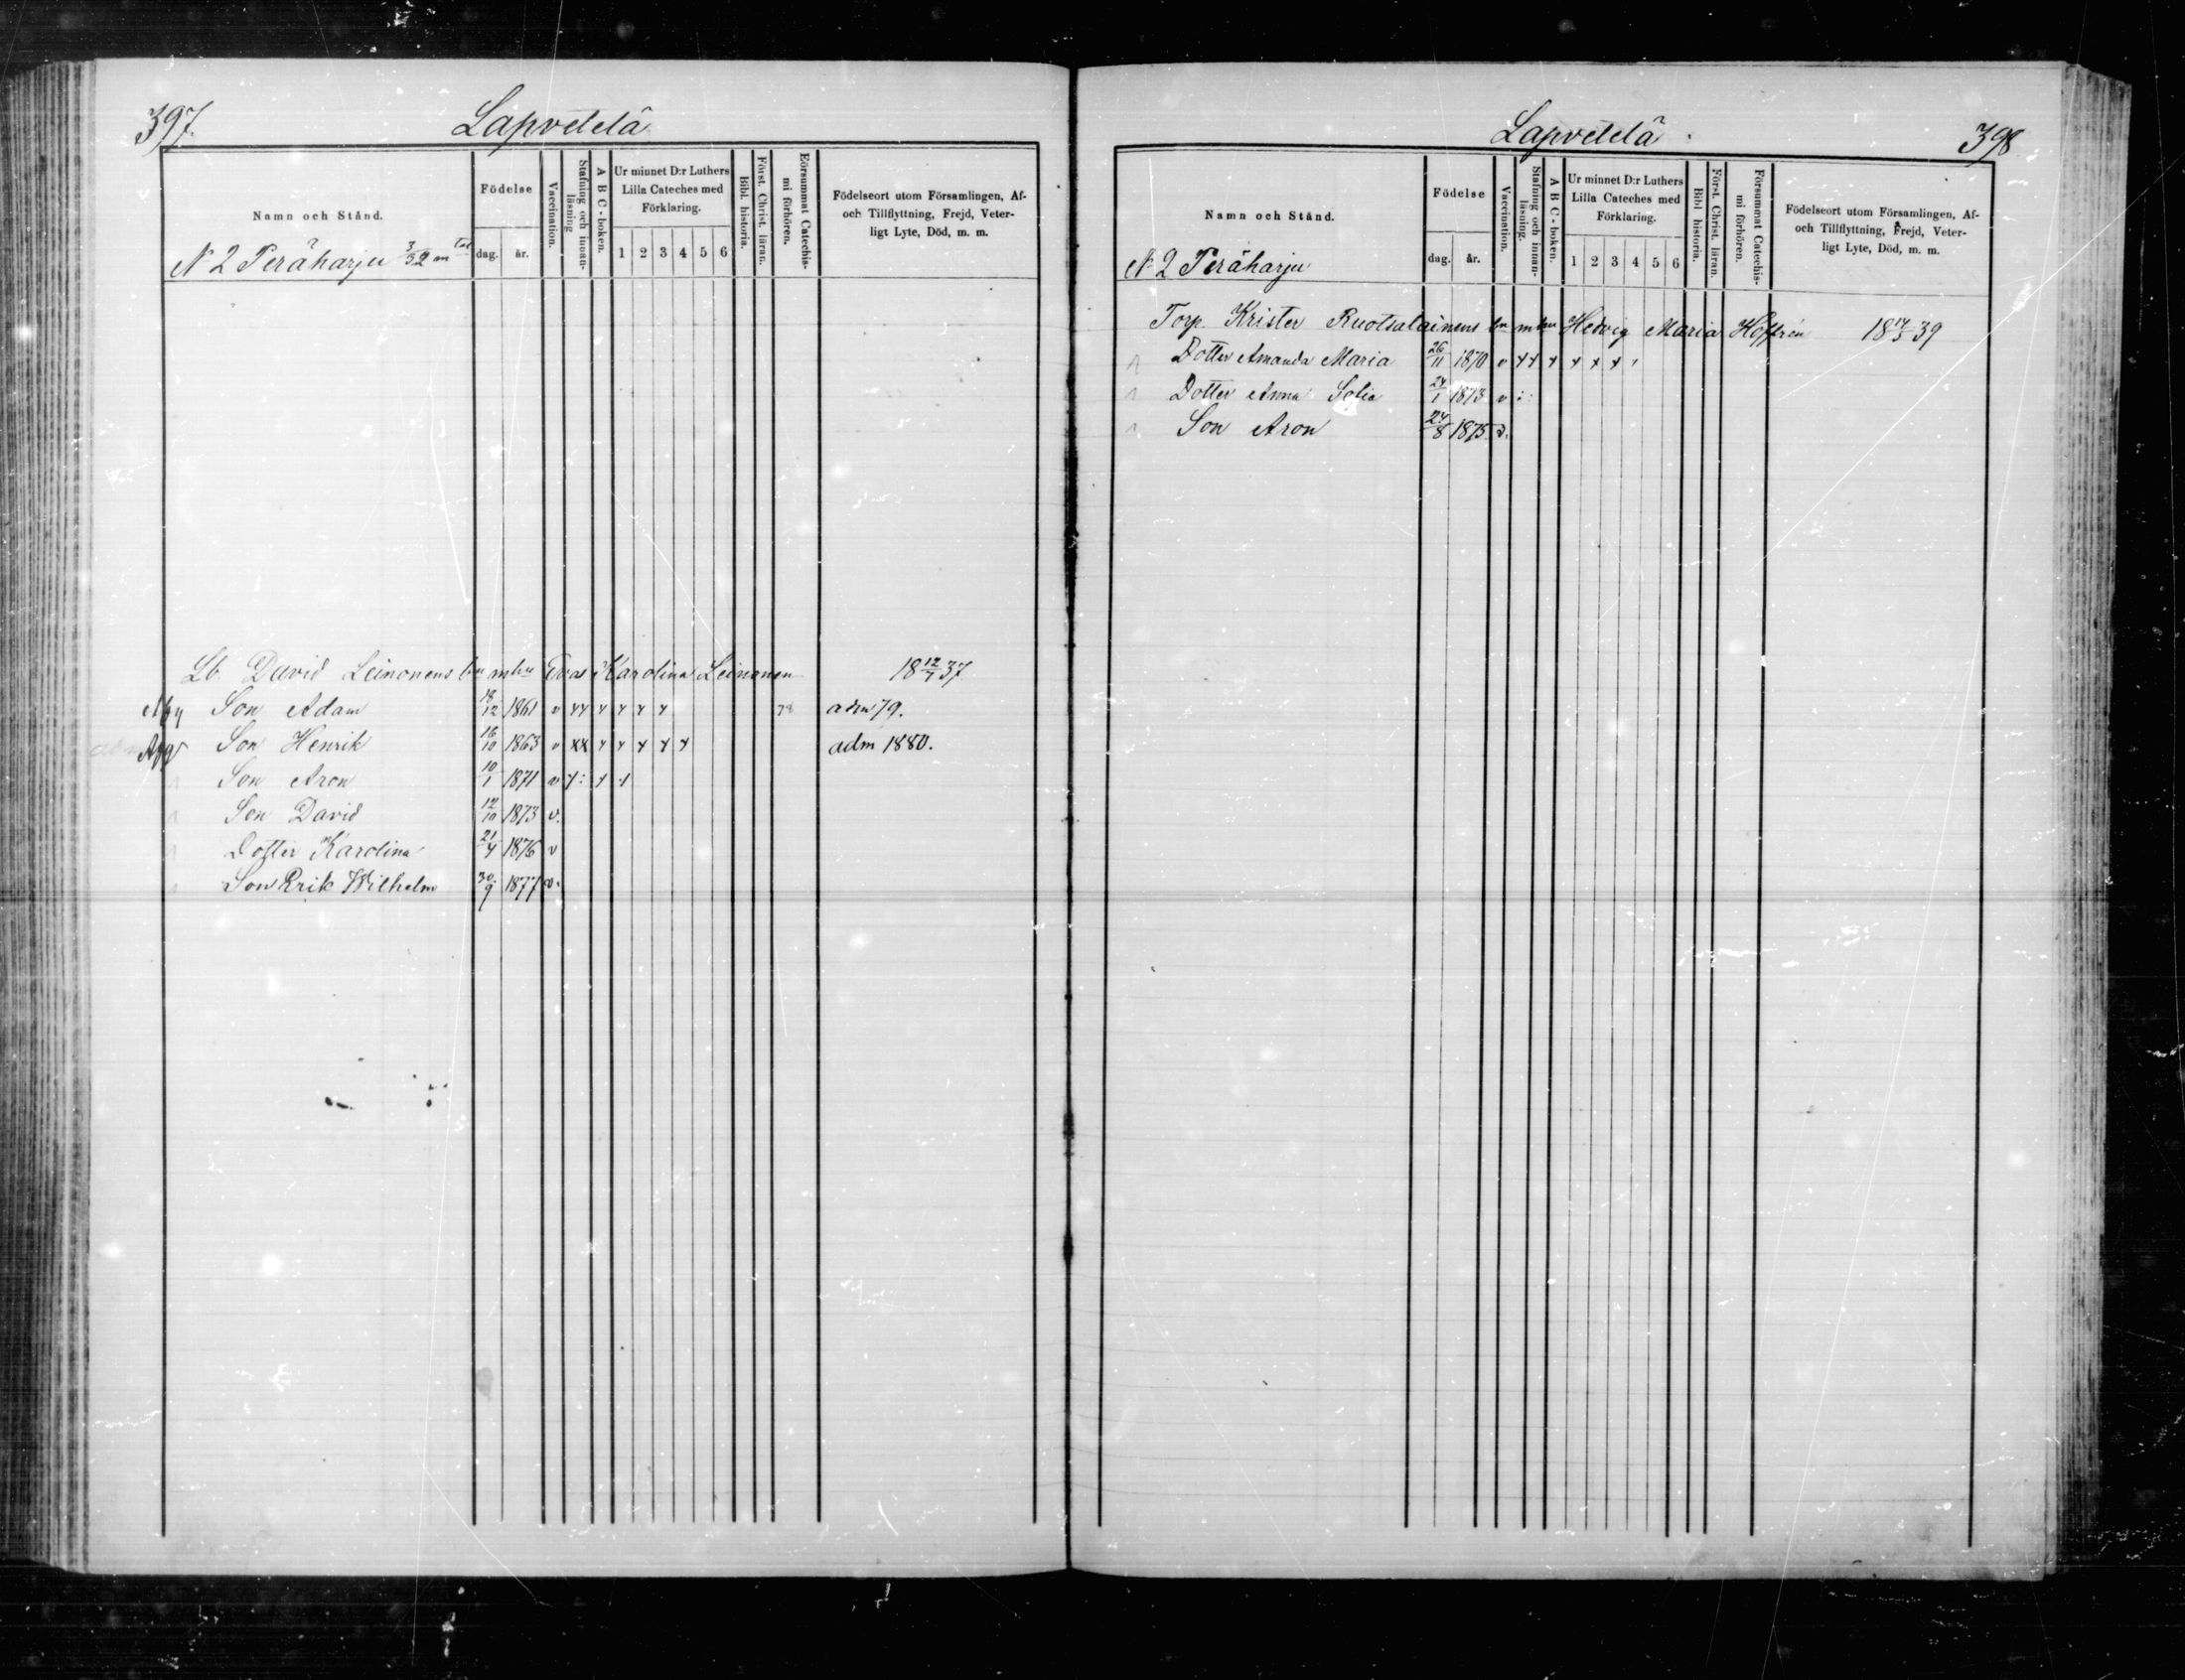 397.
Lapvetelä
Namn och Stånd.
Födelse
dag.
år.
Vaccination.
Stafning och innan-
läsning
A B C - boken.
Ur minnet D:r Luthers
Lilla Cateches med
Förklaring.
1 2 3 4 5 6
Bibl. historia.
Först. Christ. läran.
Försummat Catechis-
mi förhören.
Födelseort utom Församlingen, Af-
och Tillflyttning, Frejd, Veter-
ligt Lyte, Död, m. m.
N 2 Peräharju 3/32 mtal
Lb. David Leinonens bn mhu Eva Karolina Leinonen 18 12/7 37
Son Adam 18/12 1861 v xx x x x x adm 79.
Son Henrik 16/10 1863 v xx x x x x x adm 1880.
Son Aron 10/1 1871 v
Son David 12/10 1873 v.
Dotter Karolina 21/4 1876 v
Son Erik Wilhelm 30/9 1877 v.
Lapvetelä.
398
Namn och Stånd.
Födelse
dag.
år.
Vaccination.
Stafning och innan-
läsning.
A B C - boken.
Ur minnet D:r Luthers
Lilla Cateches med
Förklaring.
1 2 3 4 5 6
Bibl historia.
Först. Christ. läran.
Försummat Catechis-
mi förhören.
Födelseort utom Församlingen, Af-
och Tillflyttning, Frejd, Veter-
ligt Lyte, Död, m. m.
N 2 Peräharju
Torp. Krister Ruotsalainens bn mhu Hedvig Maria Hoffrén 18 17/3 39
Dotter Amanda Maria 26/11 1870 v xx x x x x
Dotter Anna Sofia 24/1 1873 v
Son Aron 24/8 1875 v.